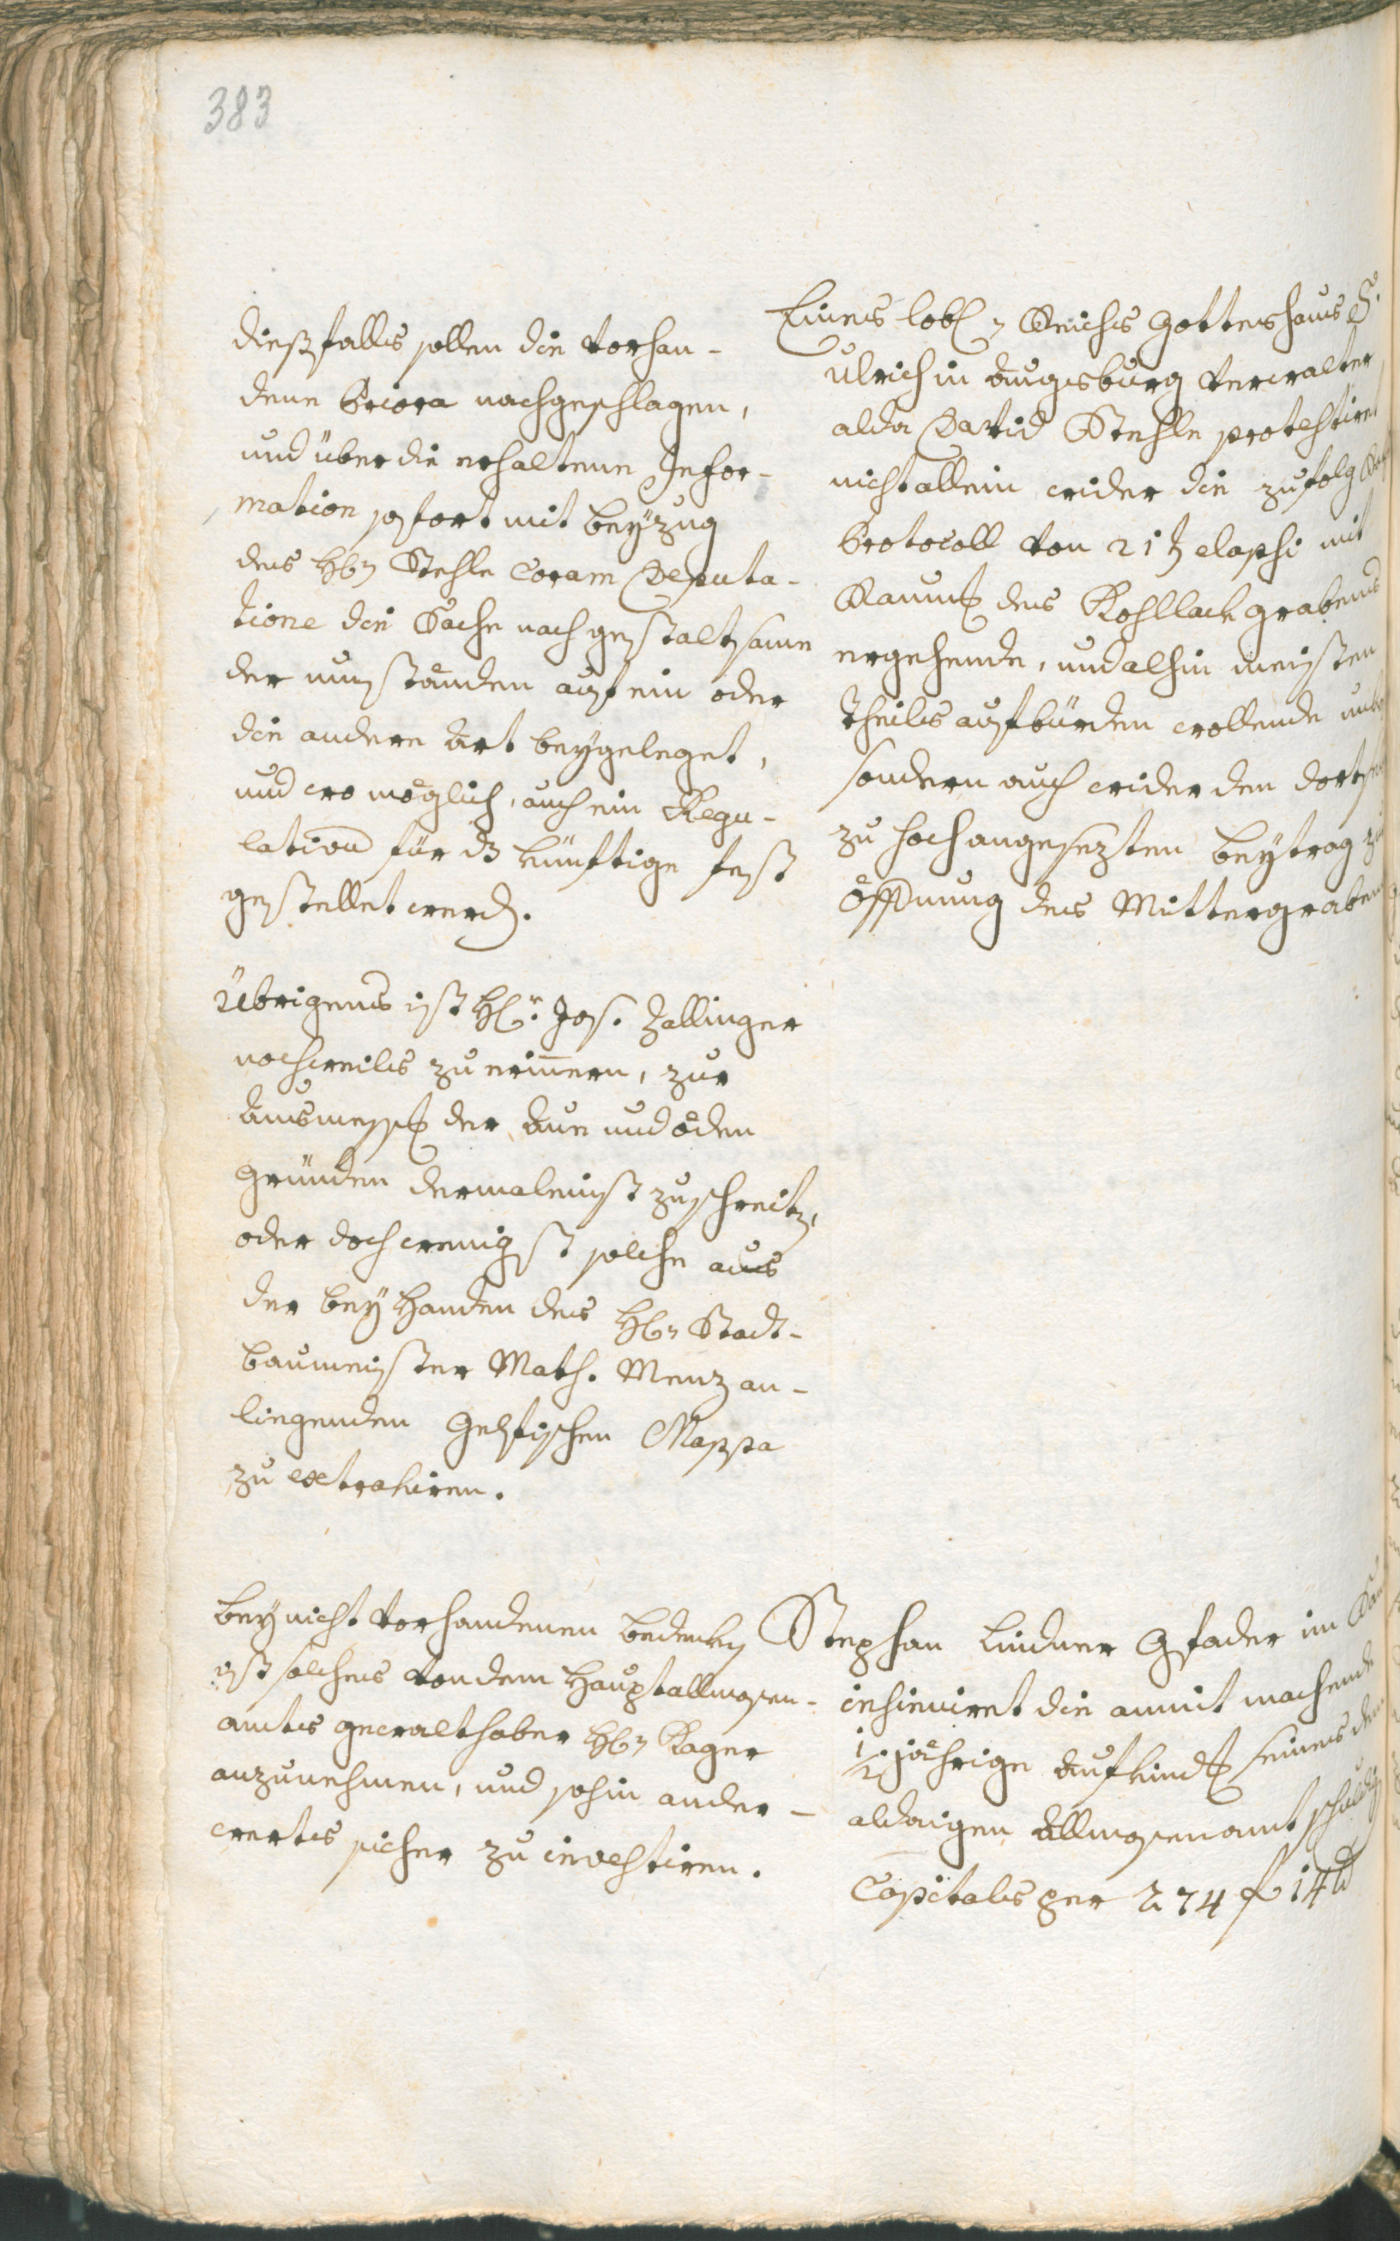 383
dießfalls sollen die vorhan-
dene Priora nachgeschlagen,
und über die erhaltene Infor-
mation sofort mit beyzug
des H: Stehle Coram Deputa-
tione die Sache nach gestaltsame
der umständen auf ein oder
die andere Art beygeleget,
und wo möglich, auch ein Regu-
lation für das künftige fest
gestellet werd.
Übrigens ist Hr: Jos. Zallinger
nochweils zu erinnern, zur
Ausmess der Aue und öden
Gründen dermaleinst zuschreit,
oder doch wenigst solche aus
der bey Handen des H Stadt-
baumeister Math. Menz an-
liegenden Mappa
zu extrahiren.
bey nicht vorhandenen bedenk
ist solches von dem Hauptallmosen-
amts gewalthaber H Kager
anzunehmen, und sohin ander-
werts sicher zu investiren.
Eines lobl: Reichs Gotteshaus S.
Ulrich in Augsburg Verwalter
alda David Stehle protestiret
nicht allein wider die zufolg
Protocoll von 21t elapsi mit
Raum des Kohllackgrabens
ergehende, und alhin meisten
theils aufbürden wollende
sondern auch wider den
zu hoch angesezten beytrag
öffnung des Mittergraben
Stephan Lindner Gfader im
insinuiret die anmit machende
1/2 jährige Aufkind seines
aldaigen Allmosenamt schuldig
Capitals per 274 f 14